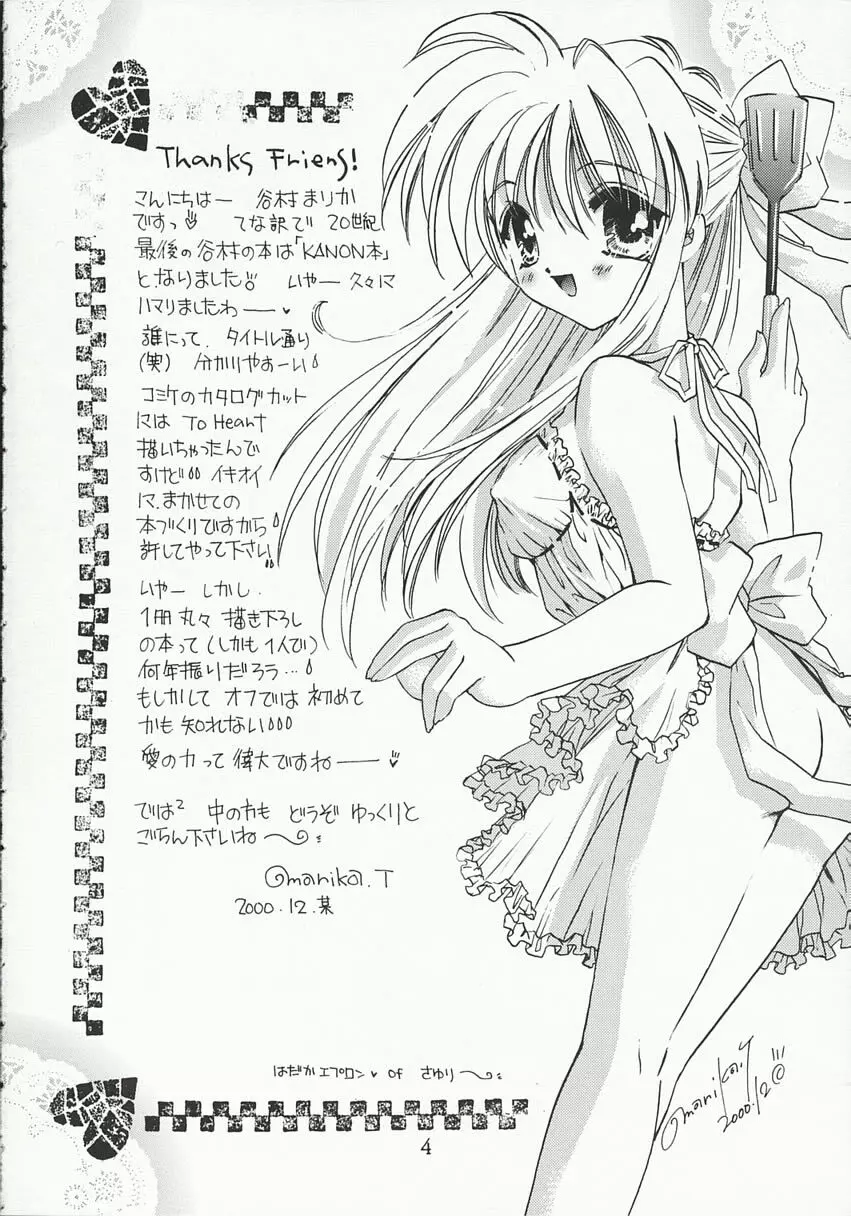 Thanks Friens!
こんにちはー 谷村まりか
ですっ てな訳で 20世紀
最後の谷村の本は「KANON本」
となりました!! いやー 久々に
ハマりましたわ―♥
誰にって、タイトル通り
(笑) 分かりやすーい
コミケのカタログカット
には To Heart
描いちゃったんで
すけど イキオイ
に、まかせての
本づくりですから
許してやって下さい
いやー しかし、
1冊丸々 描き下ろし
の本って(しかも1人で)
何年振りだろう…
もしかして オフでは 初めて
かも 知れない
愛の力って 偉大ですねー
では² 中の方も どうぞ ゆっくりと
ごらん下さいね〜
marika.T
2000.12.某
はだかエプロン♥ of さゆり〜
marika.T
2000.12 ©
4